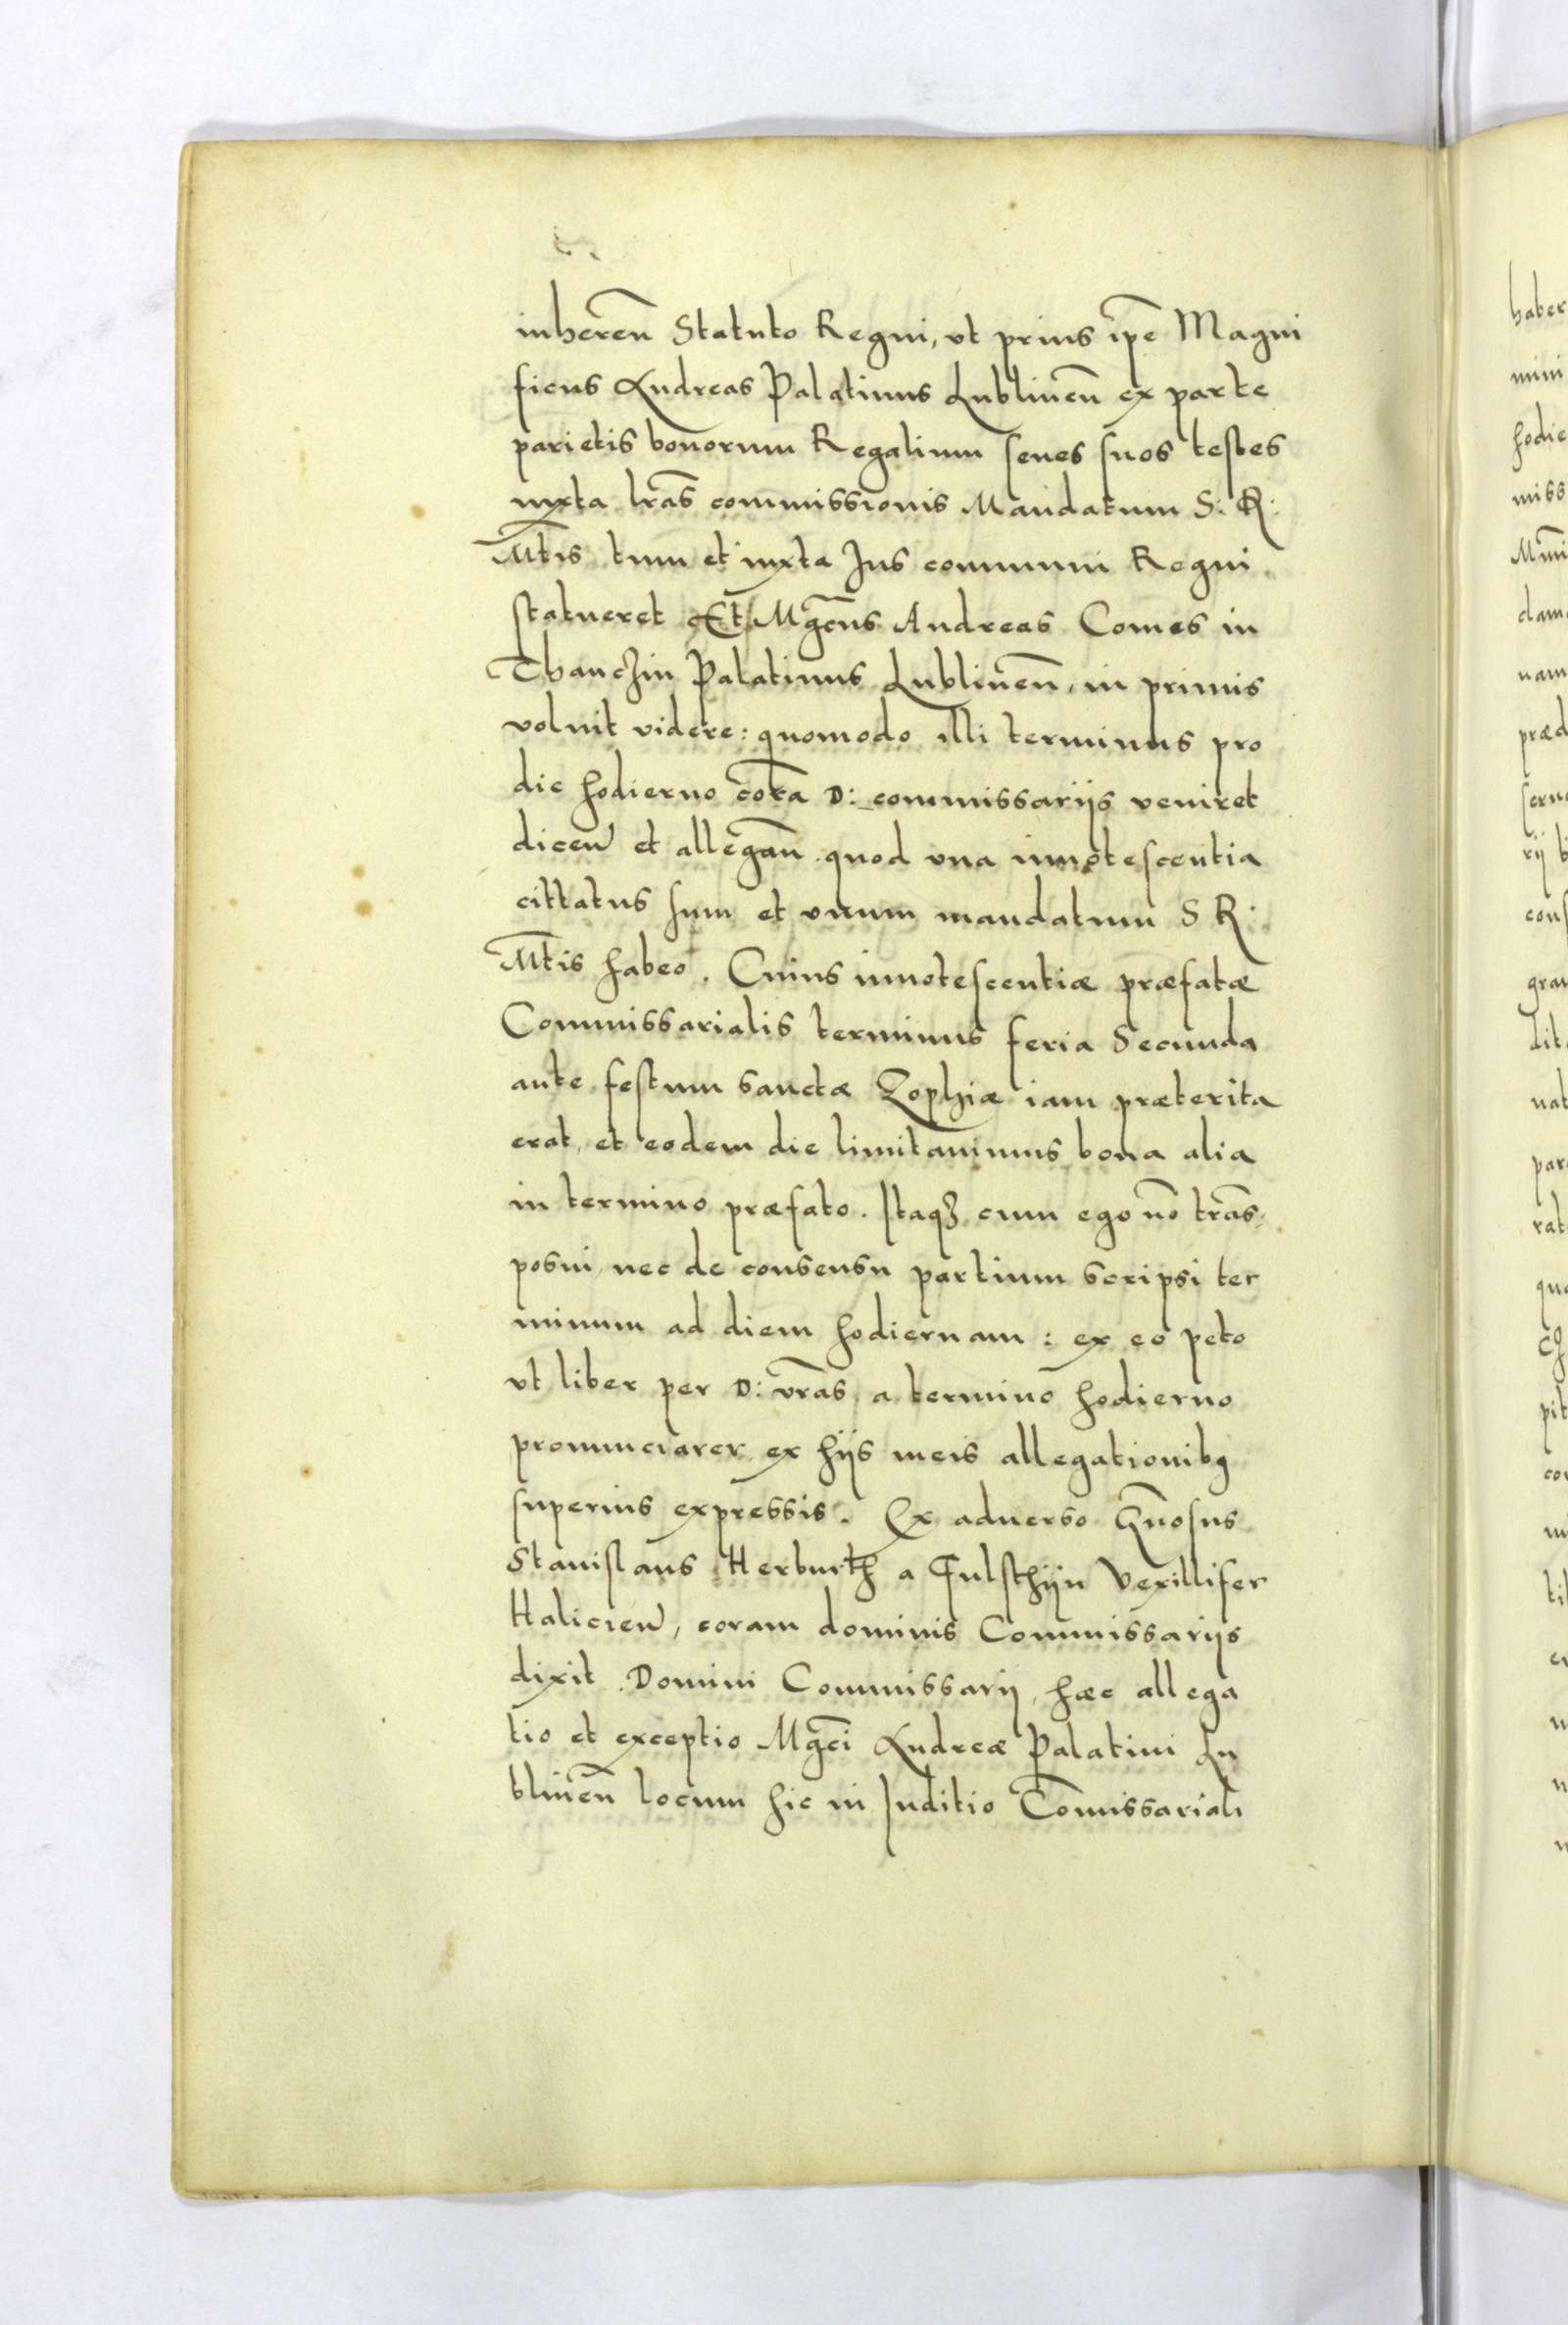 inheren̄ Statuto Regni, vt prius ip̄e Magni
ficus Andreas Palatinus Lublinen̄ ex parte
parietis bonorum Regalium senes suos testes
iuxta lr̄as commissionis Mandatum S: R:
Mt̄is tum et iuxta Jus communi Regni
statueret Et Mgc̄us Andreas Comes in
Thanczin Palatinus Lublinen̄, in primis
voluit videre: quomodo illi terminus pro
die hodierno cor̄a D: commissariis veniret
dicen̄ et allegan̄ quod vna innotescentia
cittatus sum et vnum mandatum S R:
Mt̄is habeo. Cuius innotescentiæ præfatæ
Commissarialis terminus feria Secunda
ante festum sanctæ Zophiæ iam præterita
erat, et eodem die limitauimus bona alia
in termino præfato. Itaqꝫ cum ego nō trās
posui, nec de consensu partium scripsi ter
minum ad diem hodiernam: ex eo peto
vt liber per D: vr̄as a termino hodierno
pronunciarer ex hijs meis allegationibꝯ
superius expressis. Ex aduerso Gn̄osus
Stanislaus Herburth a Fulsthijn Vexillifer
Halicien̄, coram dominis Commissarijs
dixit. Domini Commissarij, hæc allega
tio et exceptio Mgc̄i Andreæ Palatini Lu
blinen̄ locum hic in Juditio Com̄issariali
haber
mini
hodie
miss
dam
nam
præd
seru
rij
cons
gra
lit
nat
par
rat
pit